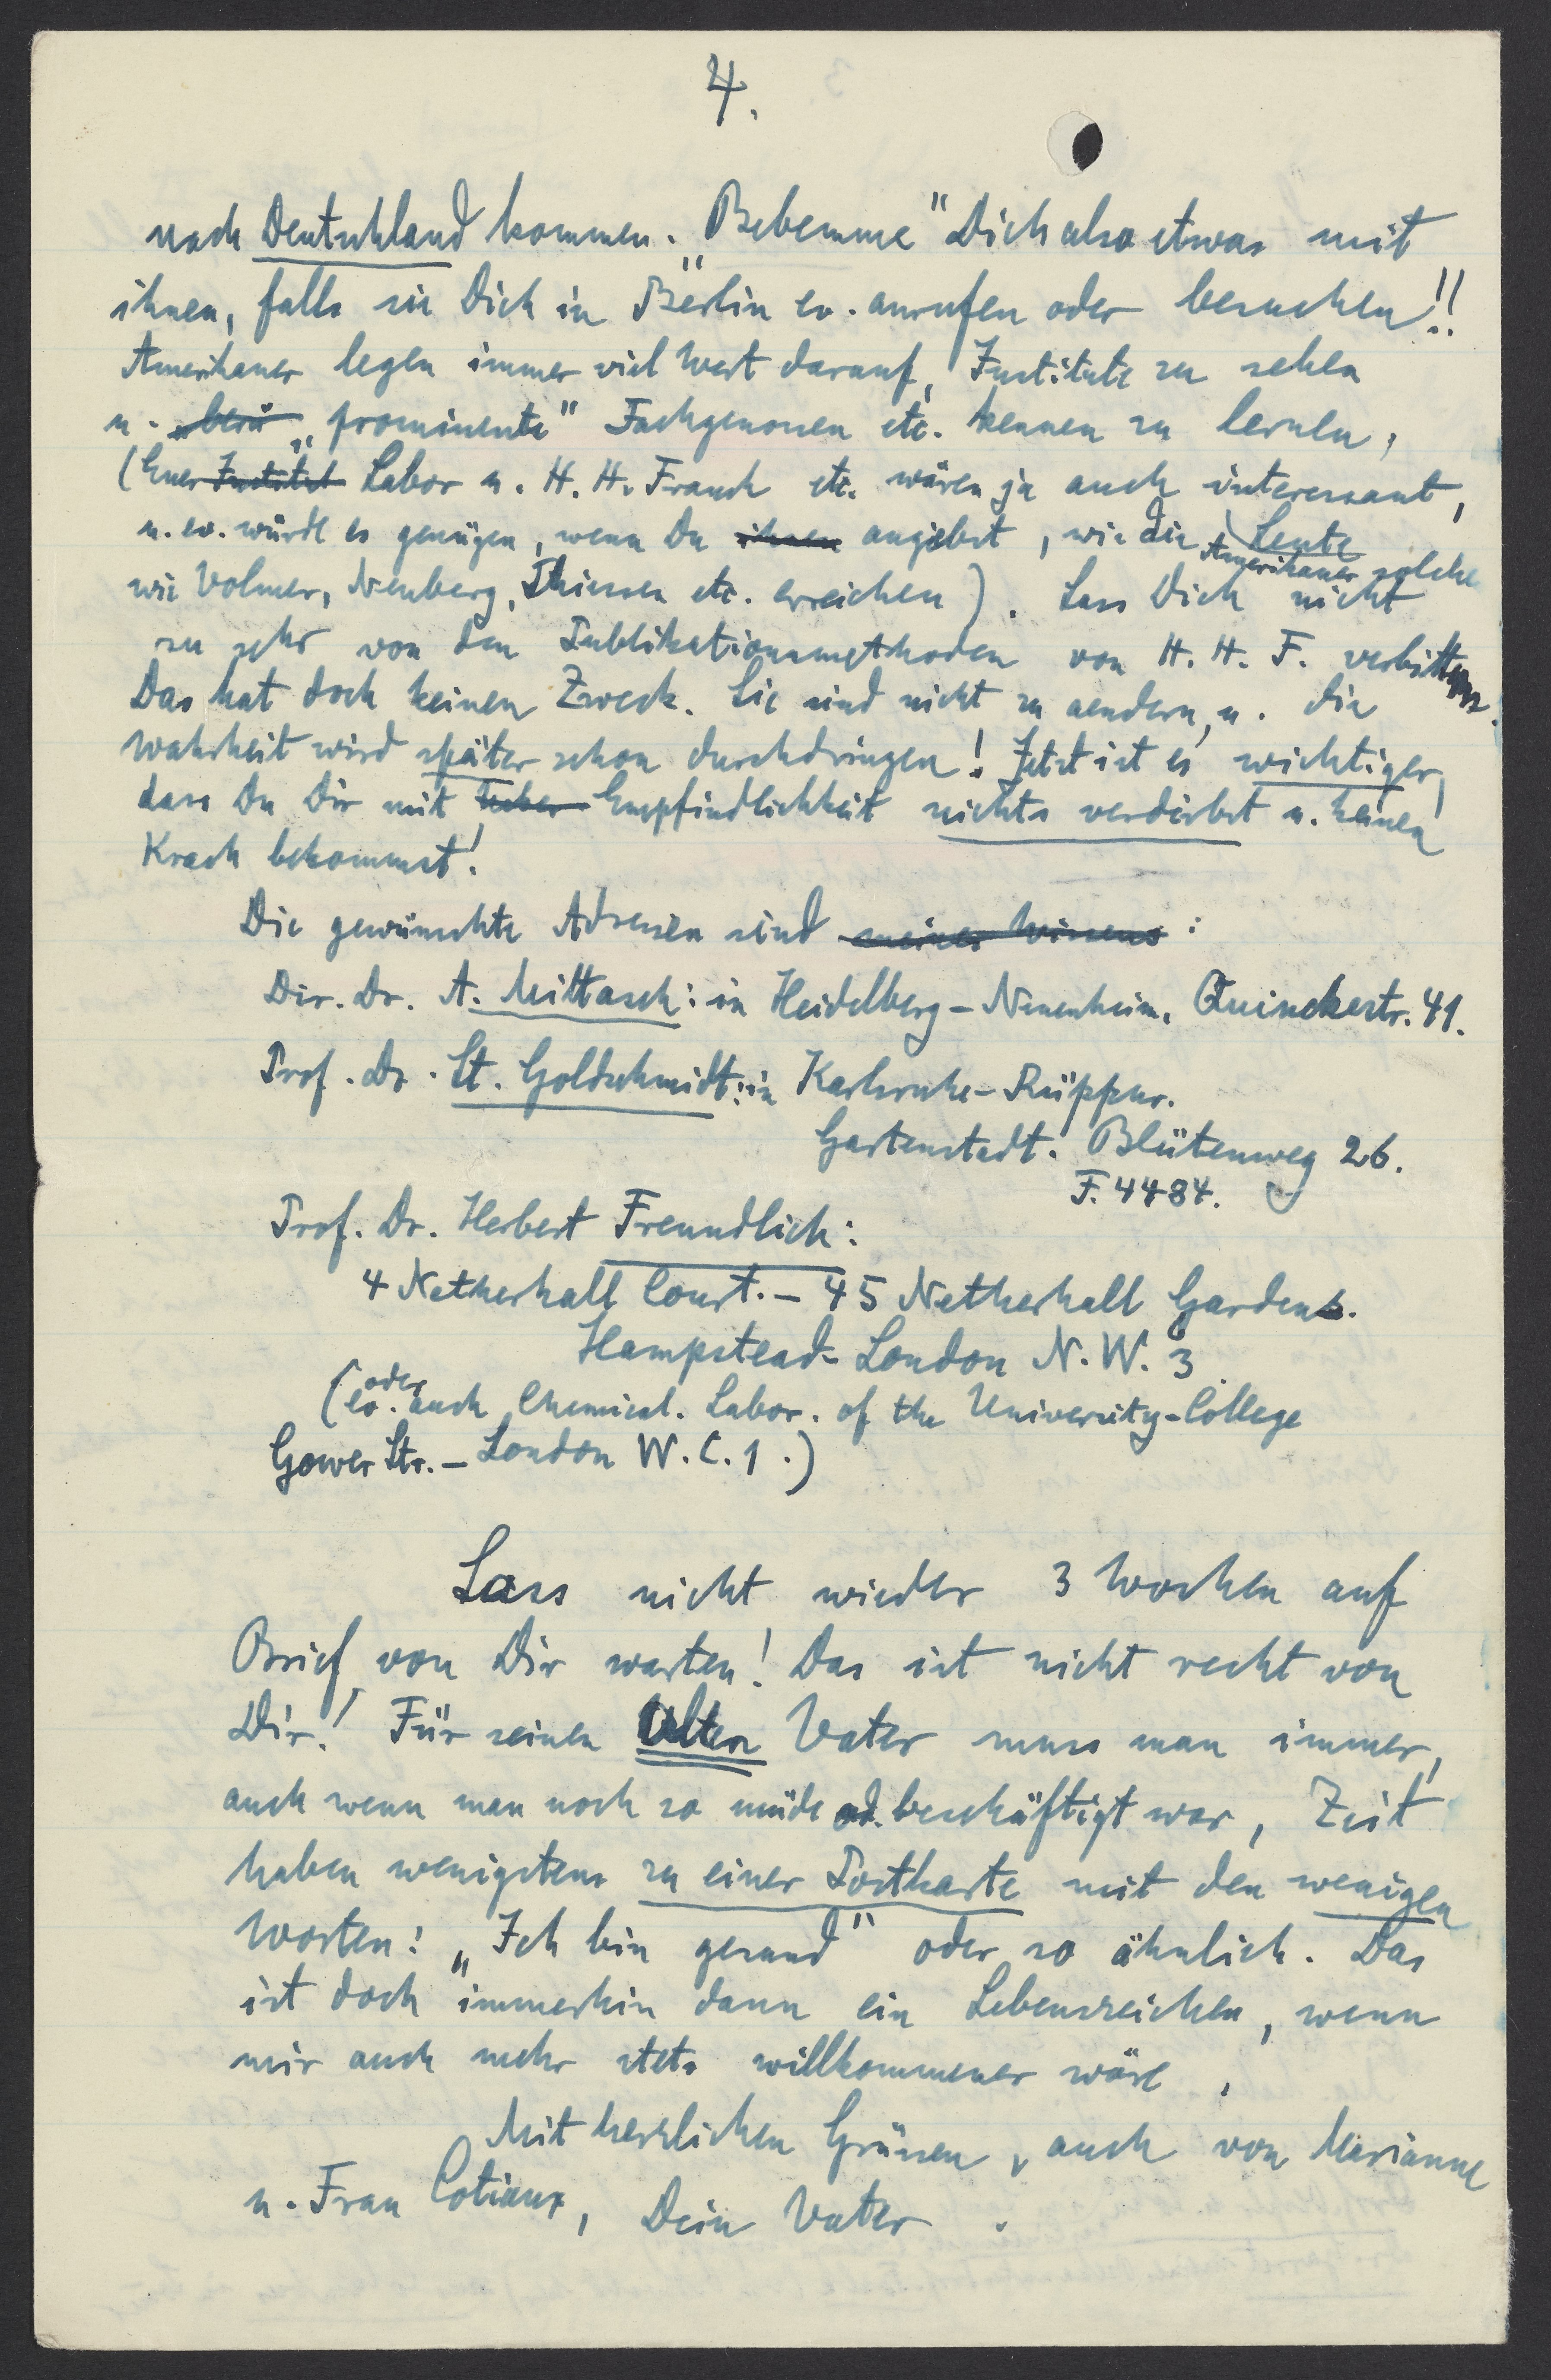 4.
nach Deutschland kommen. „Bebemme" Dich also etwas mit
ihnen, falls sie Dich in Berlin ev. anrufen oder besuchen!!
Amerikaner legen immer viel Wert darauf, Institute zu sehen
u. „berü „prominente" Fachgenossen etc. kennen zu lernen,
(Euer Institut Labor u. H. H. Franck etc. wären ja auch interessant,
u. ev. würde es genügen, wenn Du ihnen angiebst, wie die Amerikaner solche Leute
wie Volmer, Neuberg, Thiessen etc. erreichen). Lass Dich nicht
zu sehr von den Publikationsmethoden von H. H. F. verbittern.
Das hat doch keinen Zweck. Sie sind nicht zu aendern, u. die
Wahrheit wird später schon durchdringen! Jetzt ist es wichtiger,
dass Du Dir mit Empfindlichkeit nichts verdirbst u. keinen
Krach bekommst!
Die gewünschte Adressen sind meines Wissens:
Dir. Dr. A. Mittasch: in Heidelberg-Neuenheim. Quinckestr. 41.
Prof. Dr. St. Goldschmidt: in Karlsruhe-Rüppur.
Gartenstadt. Blütenweg 26.
F. 4484.
Prof. Dr. Herbert Freundlich:
4 Netherhall Court. - 45 Netherhall Gardens.
Hampstead - London N.W. 3
(oder ev. auch Chemical. Labor. of the University-College
Gower Str. - London W.C.1.)
Lass nicht wieder 3 Wochen auf
Brief von Dir warten! Das ist nicht recht von
Dir! Für seinen alten Vater muss man immer,
auch wenn man noch so müde od. beschäftigt war, Zeit
haben wenigstens zu einer Postkarte mit den wenigen
Worten: „Ich bin gesund" oder so ähnlich. Das
ist doch immerhin dann ein Lebenszeichen, wenn
mir auch mehr stets willkommener wäre.
Mit herzlichen Grüssen, auch von Marianne
u. Frau Cotiaux, Dein Vater.